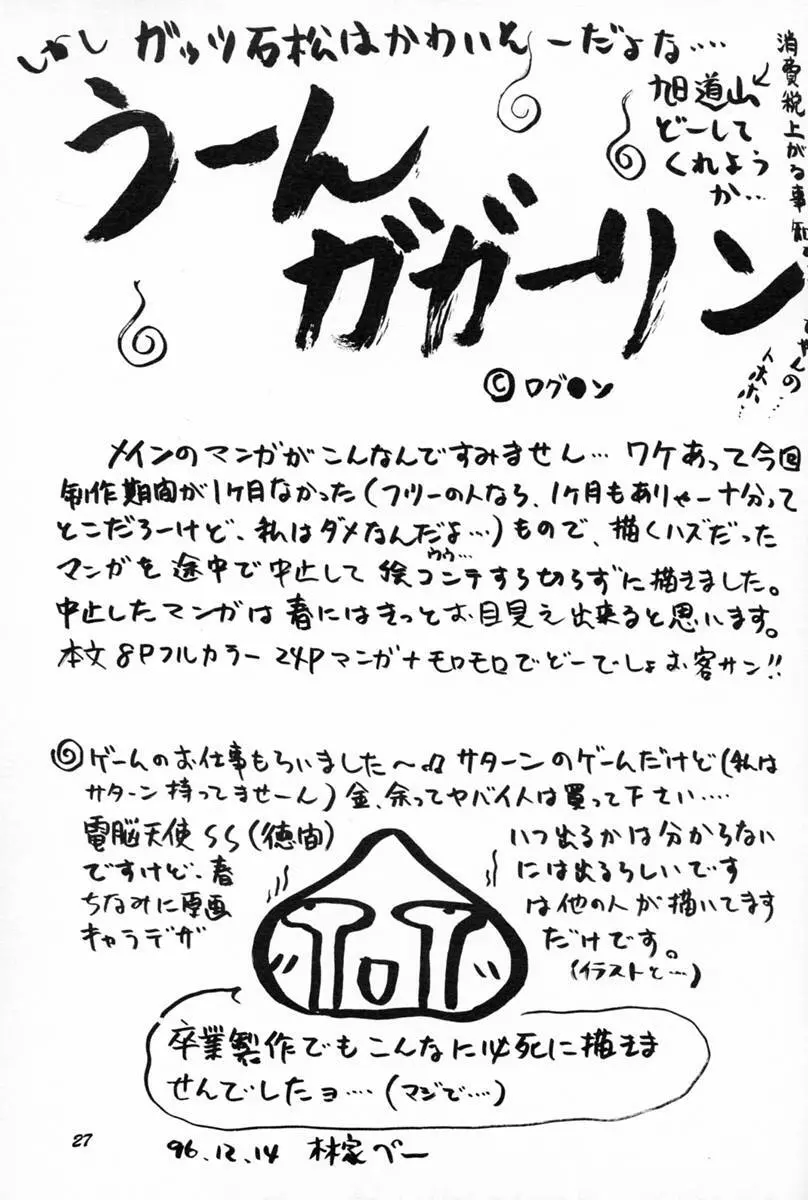 しかし ガッツ石松はかわいそーだよな‥‥
旭道山
どーして
くれよう
か…
消費税上がる事
うーん
ガガーリン
©ログ●ン
メインのマンガがこんなんですみません… ワケあって今回
制作期間が1ヶ月なかった(フリーの人なら、1ヶ月もありゃー十分って
とこだろーけど、私はダメなんだよ…)もので、描くハズだった
マンガを途中で中止して絵コンテすら切らずに描きました。
ウゥ…
中止したマンガは春にはきっとお目見え出来ると思います。
本文8Pフルカラー24Pマンガ+モロモロでどーでしょお客サン!!
ゲームのお仕事もらいました〜♫ サターンのゲームだけど(私は
サターン持ってませーん)金、余ってヤバイ人は買って下さい‥‥
電脳天使SS(徳間)
ですけど、春
ちなみに原画
キャラデザ
いつ出るかは分からない
には出るらしいです
は他の人が描いてます
だけです。
(イラストと…)
卒業製作でもこんなに必死に描きま
せんでしたョ…(マジで…)
27
96.12.14 林家ペー